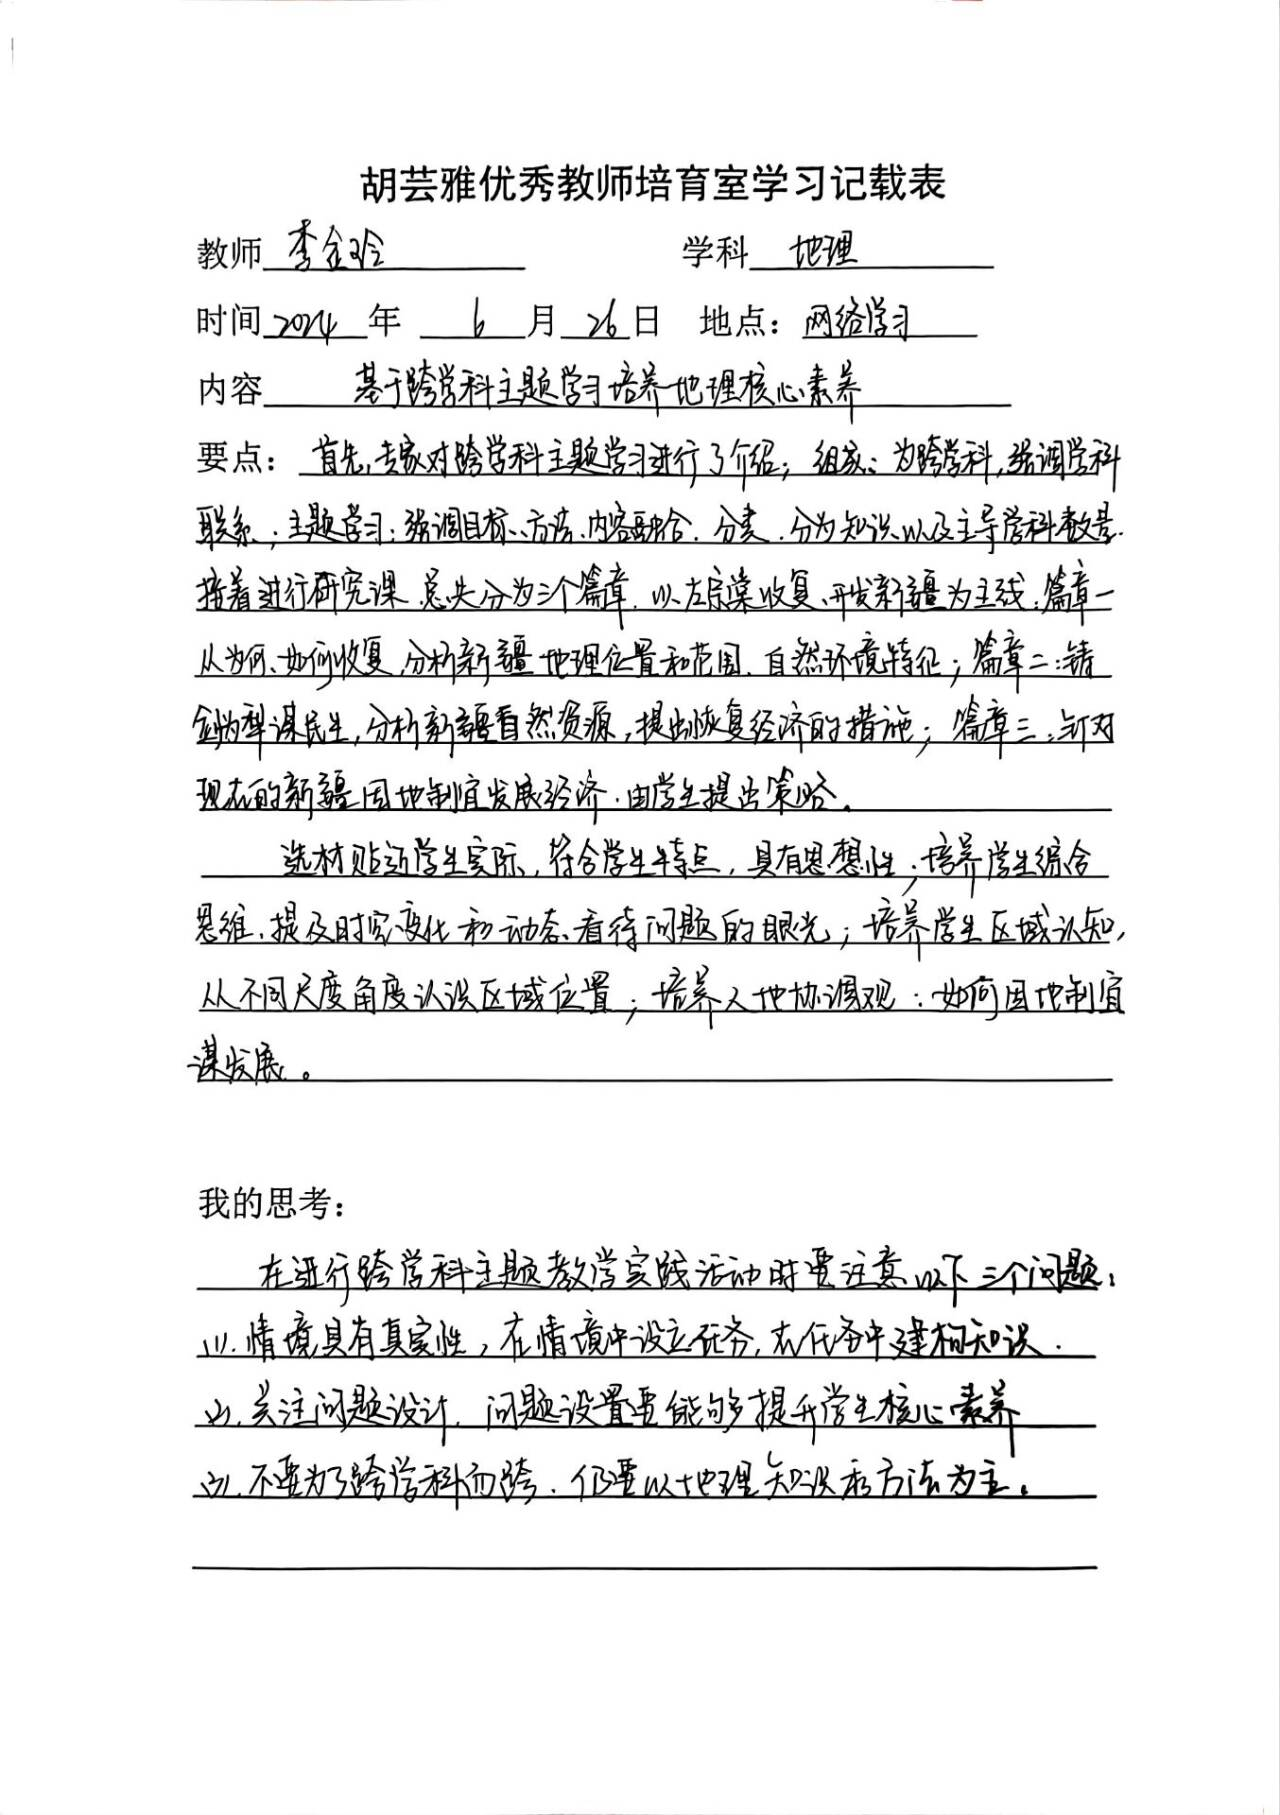 胡芸雅优秀教师培育室学习记载表
教师 李金玲 学科 地理
时间 2024 年 6 月 26 日 地点：网络学习
内容 基于跨学科主题学习培养地理核心素养
要点：首先，专家对跨学科主题学习进行了介绍；组成：为跨学科，强调学科
联系；主题学习：强调目标、方法、内容融合．分类．分为知识以及主导学科数量．
接着进行研究课．总共分为三个篇章．以左宗棠收复、开发新疆为主线：篇章一
从为何、如何收复，分析新疆地理位置和范围、自然环境特征；篇章二：铸
剑为犁谋民生，分析新疆自然资源，提出恢复经济的措施；篇章三：针对
现在的新疆因地制宜发展经济．由学生提出策略。
选材贴近学生实际，符合学生特点，具有思想性；培养学生综合
思维．提及时空变化和动态看待问题的眼光；培养学生区域认知，
从不同尺度角度认识区域位置；培养人地协调观：如何因地制宜
谋发展。
我的思考：
在进行跨学科主题教学实践活动时要注意以下三个问题：
(1).情境具有真实性，在情境中设立任务，在任务中建构知识．
(2).关注问题设计．问题设置要能够提升学生核心素养
(3).不要为了跨学科而跨．仍要以地理知识和方法为主。